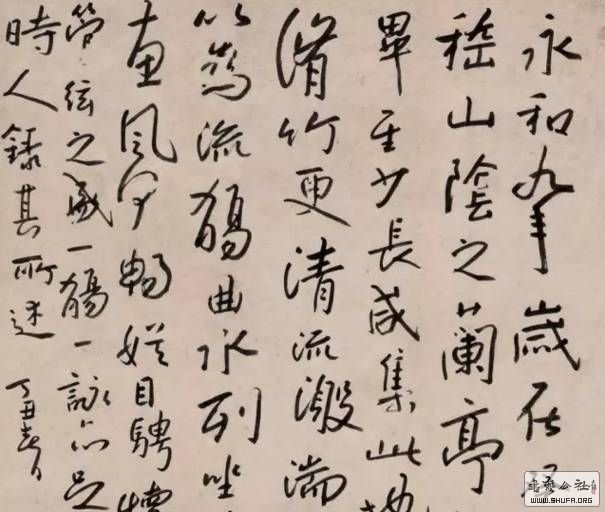 永和九年歲在
稽山陰之蘭亭
畢至少長咸集此地
脩竹更清流激湍
以為流觴曲水列坐
惠風和暢娱目騁懷
管弦之盛一觴一詠亦足
時人錄其所述 丁丑春日
书艺公社
WWW.SHUFA.ORG